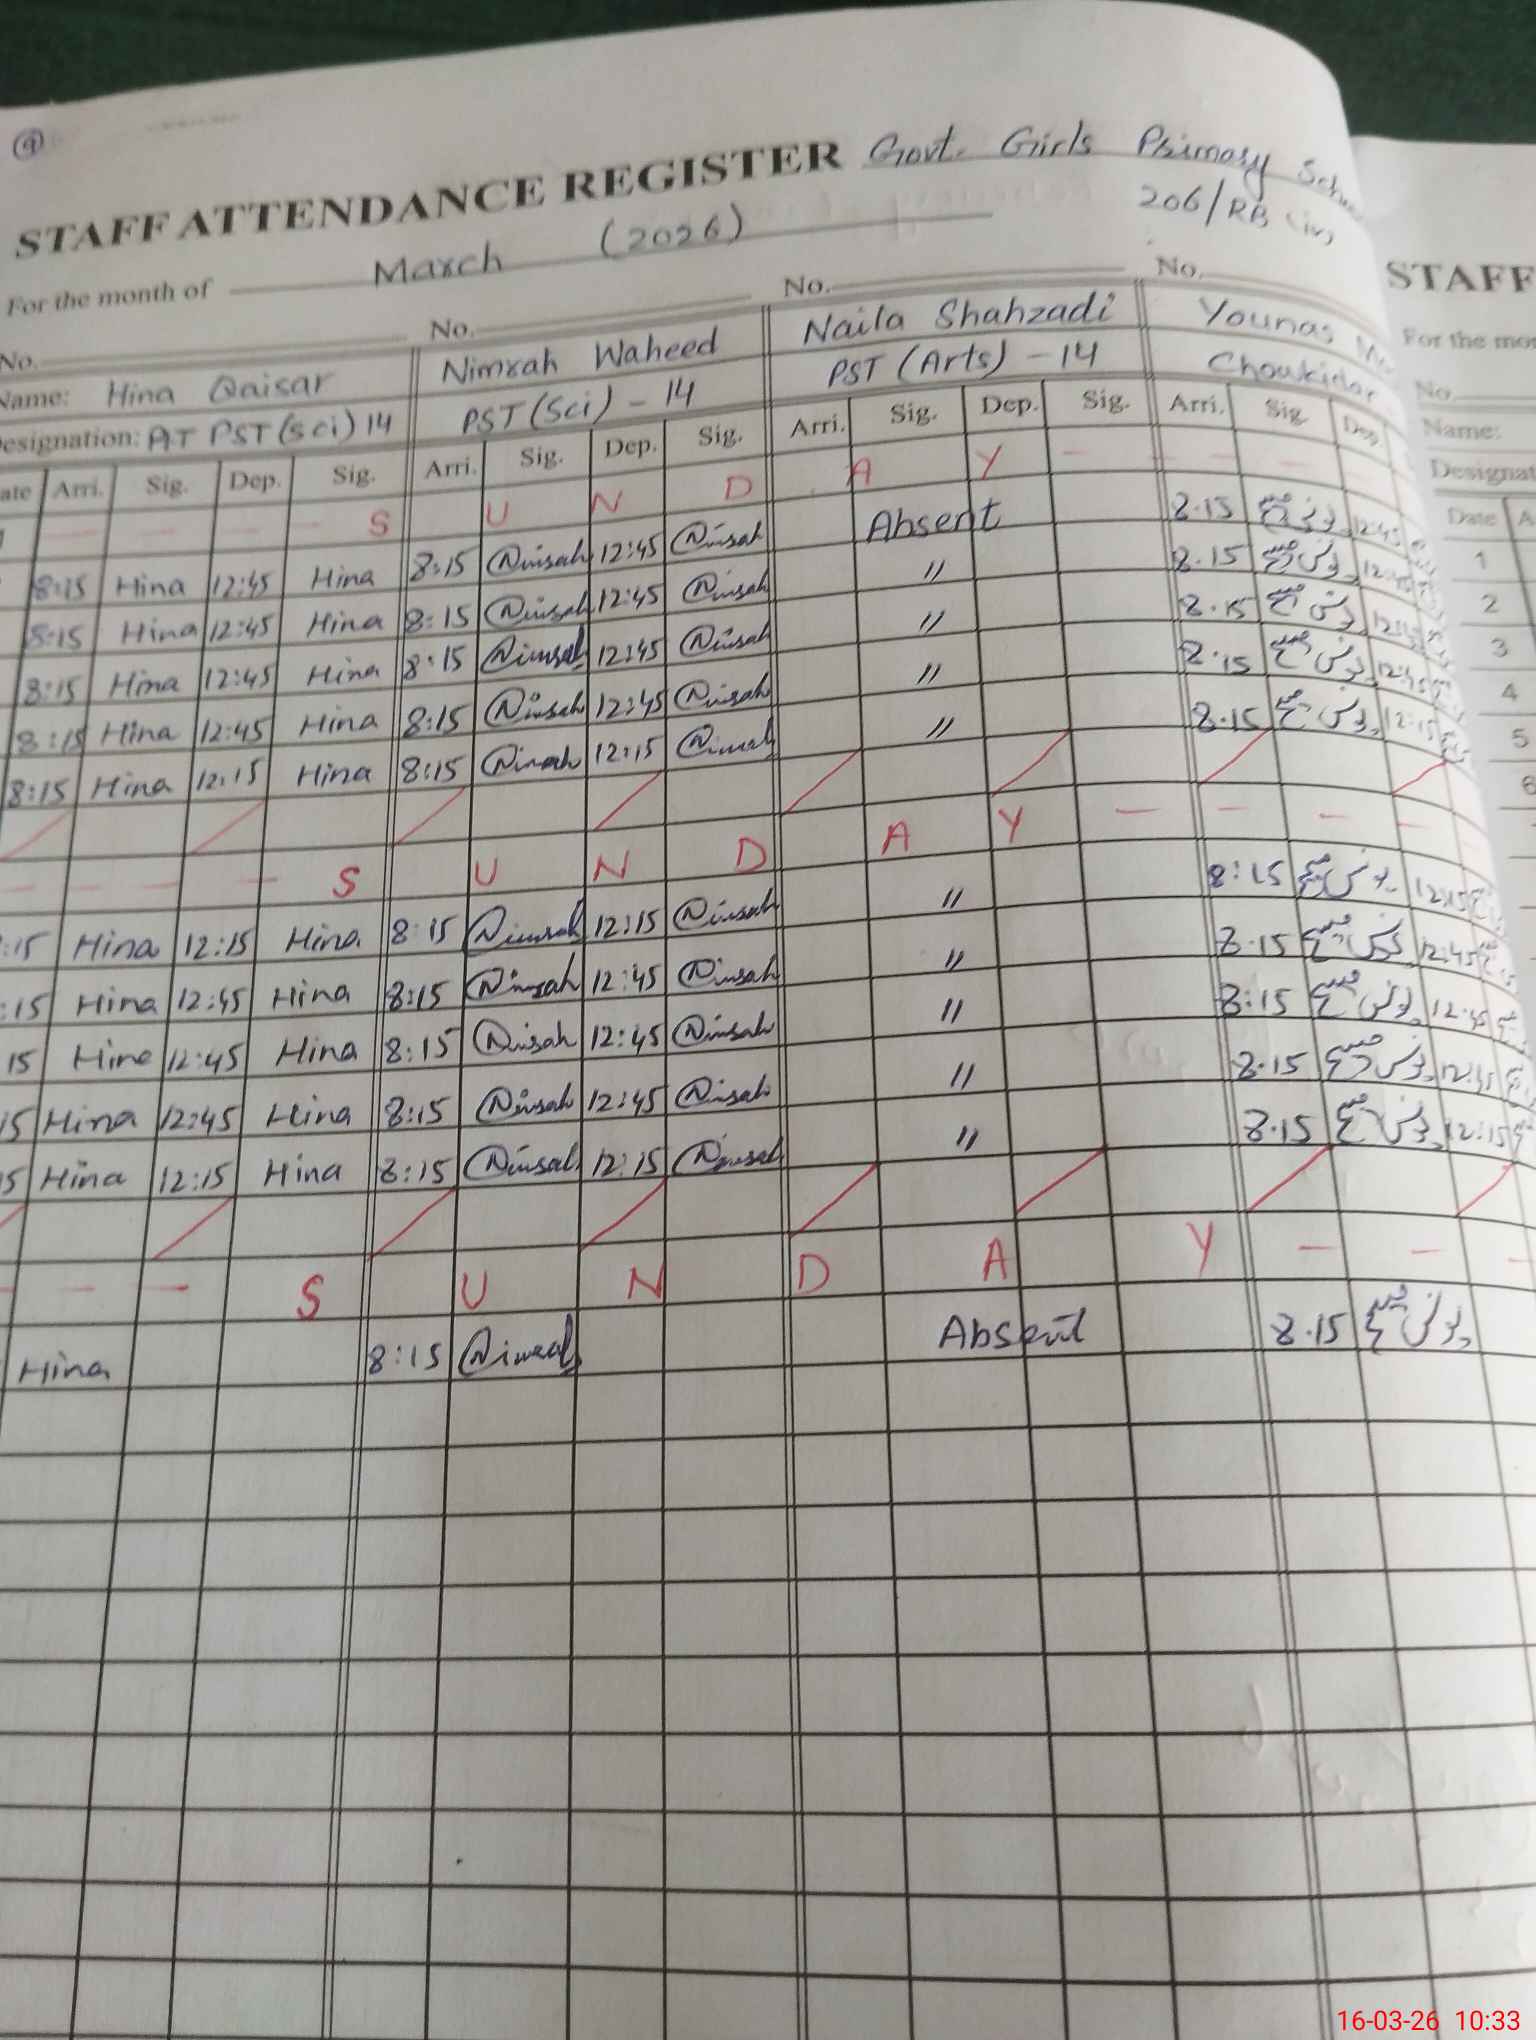 9
STAFF ATTENDANCE REGISTER Govt. Girls Primary
206/RB (iv)
For the month of March (2026)
No. No. No. No.
Name: Hina Qaisar Nimrah Waheed Naila Shahzadi Younas
Designation: PST (Sci) 14 PST (Sci) - 14 PST (Arts) - 14 Choukidar
Arri. Sig. Dep. Sig. Arri. Sig. Dep. Sig. Arri. Sig. Dep. Sig. Arri. Sig. Dep.
S U N D A Y
8:15 Hina 12:45 Hina 8:15 Nimrah 12:45 Nimrah Absent 8.15 یونس مسیح 12:45
8:15 Hina 12:45 Hina 8:15 Nimrah 12:45 Nimrah " 8.15 یونس مسیح 12:45
8:15 Hina 12:45 Hina 8:15 Nimrah 12:45 Nimrah " 8.15 یونس مسیح 12:45
8:15 Hina 12:45 Hina 8:15 Nimrah 12:45 Nimrah " 8.15 یونس مسیح 12:45
8:15 Hina 12:15 Hina 8:15 Nimrah 12:15 Nimrah " 8.15 یونس مسیح 12:15
S U N D A Y
:15 Hina 12:15 Hina 8:15 Nimrah 12:15 Nimrah " 8:15 یونس مسیح 12:15
:15 Hina 12:45 Hina 8:15 Nimrah 12:45 Nimrah " 8.15 یونس مسیح 12:45
15 Hina 12:45 Hina 8:15 Nimrah 12:45 Nimrah " 8:15 یونس مسیح 12:45
15 Hina 12:45 Hina 8:15 Nimrah 12:45 Nimrah " 8.15 یونس مسیح 12:45
5 Hina 12:15 Hina 8:15 Nimrah 12:15 Nimrah " 8.15 یونس مسیح 12:15
S U N D A Y
Hina 8:15 Nimrah Absent 8.15 یونس مسیح
STAFF
For the
No.
Name:
Date A
1
2
3
4
5
6
16-03-26 10:33